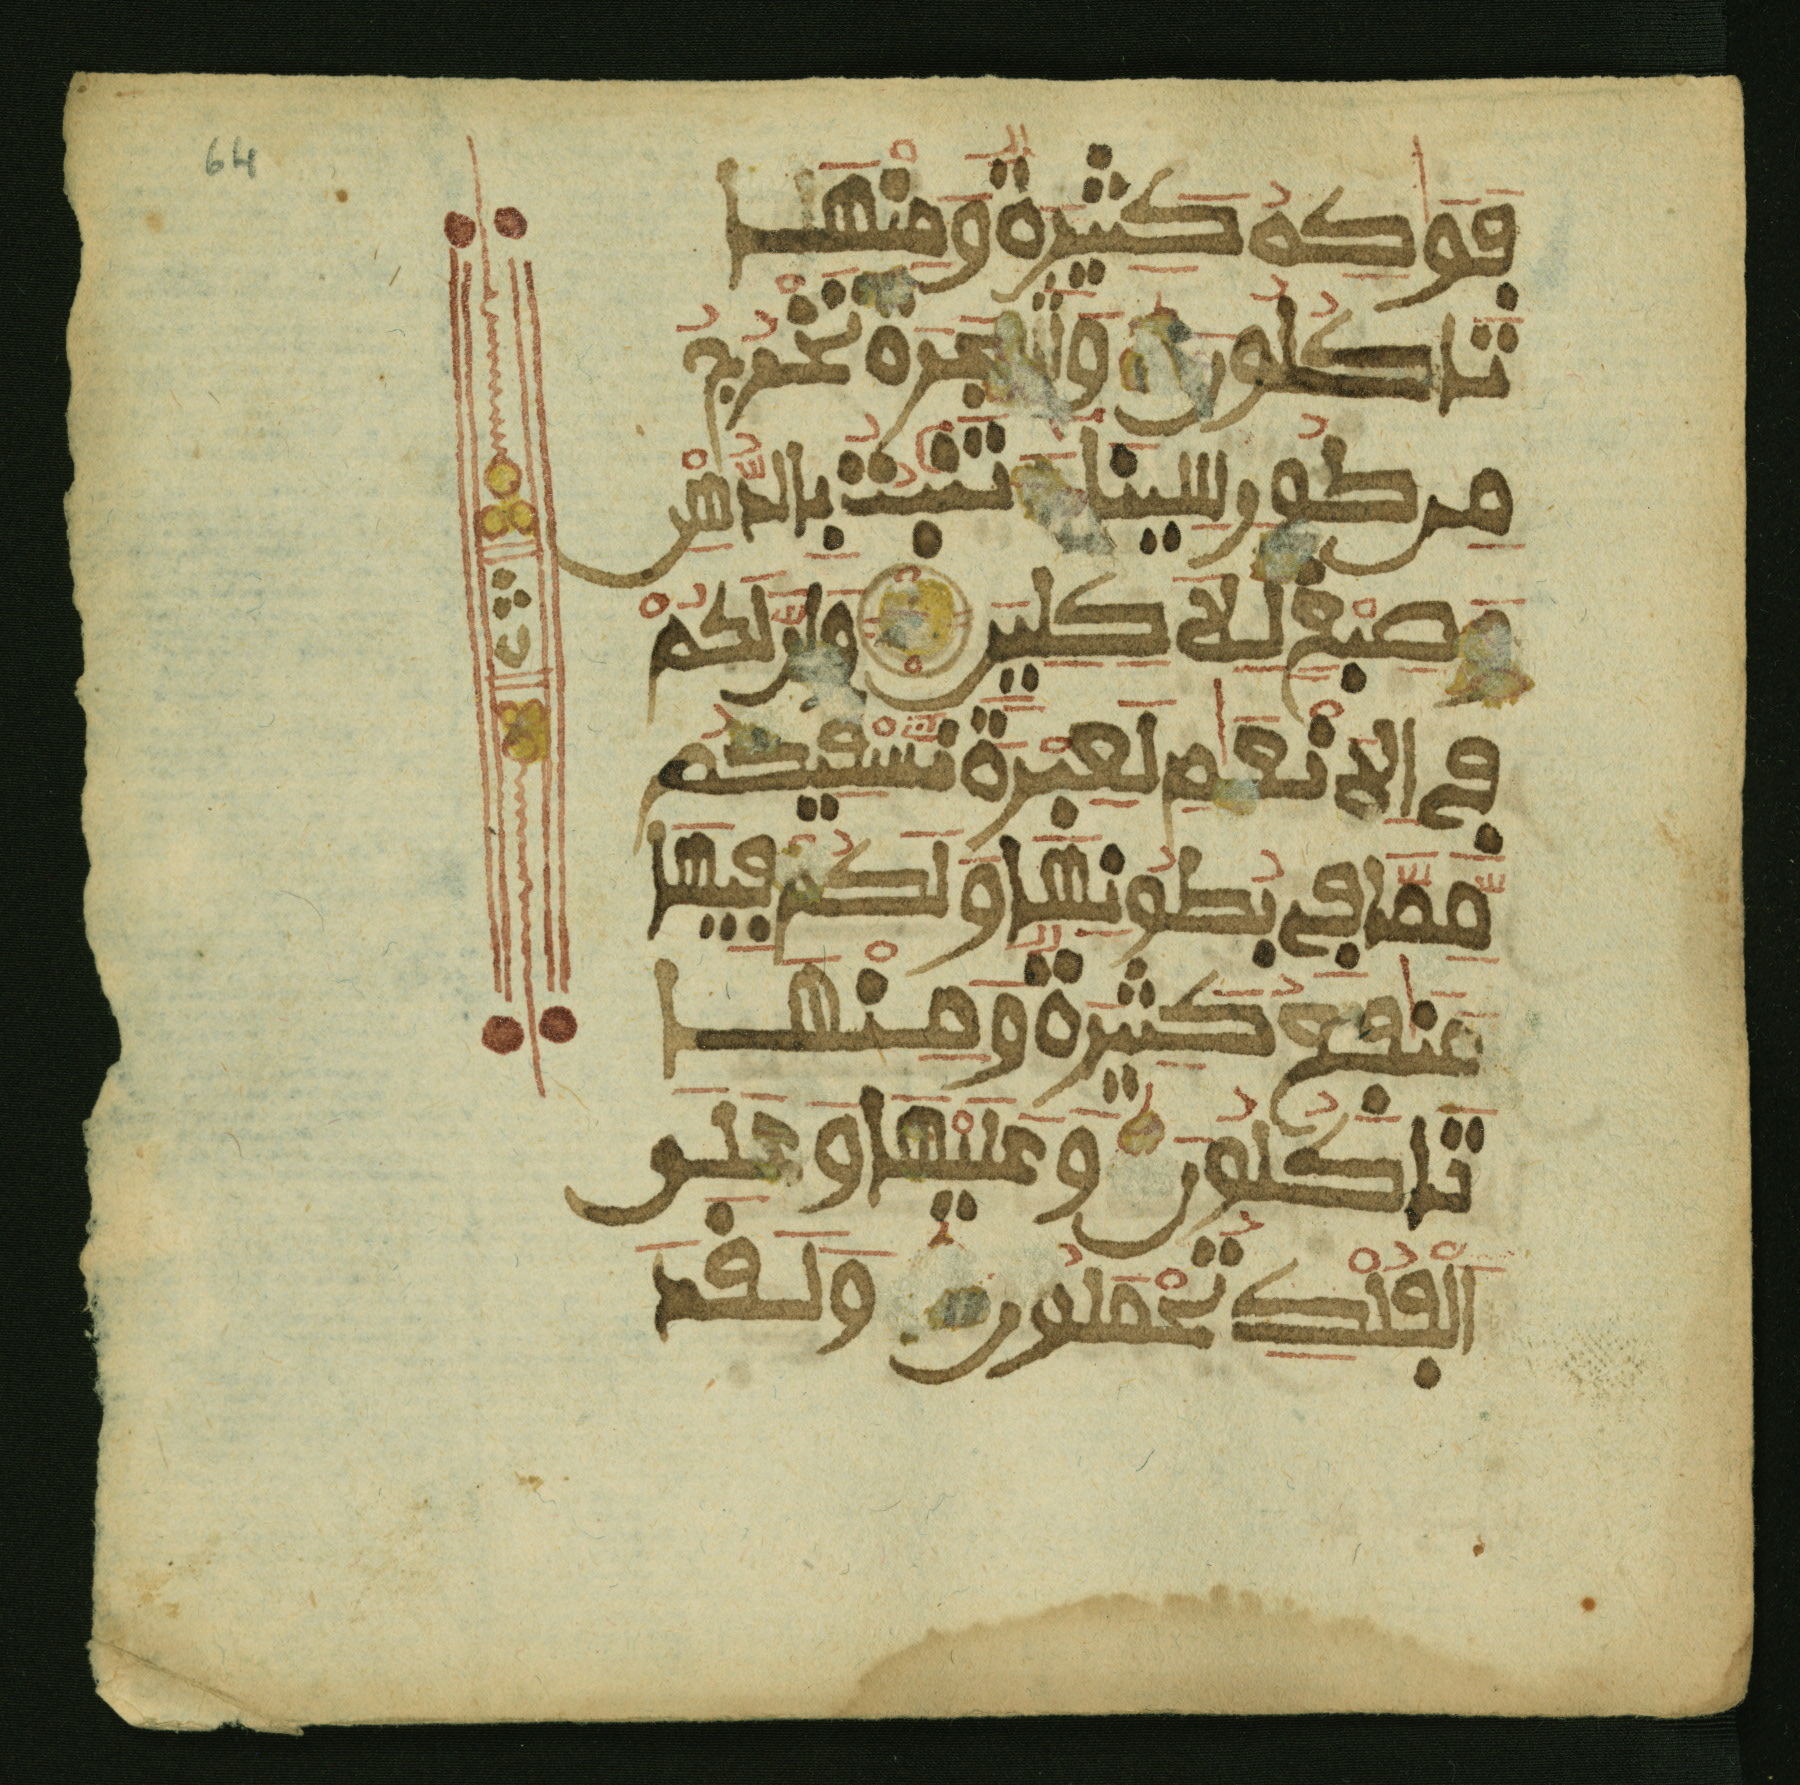 64
فَوَٰكِهُ كَثِيرَةٌ وَمِنْهَا
تَاكُلُونَ وَشَجَرَةً تَخْرُجُ
مِن طُورِ سِينَاءَ تَنۢبُتُ بِالدُّهْنِ
وَصِبْغٍ لِلَاكِلِينَ وَإِنَّ لَكُمْ
فِي الَانْعَٰمِ لَعِبْرَةً نُّسْقِيكُم
مِّمَّا فِي بُطُونِهَا وَلَكُمْ فِيهَا
مَنَٰفِعُ كَثِيرَةٌ وَمِنْهَا
تَاكُلُونَ وَعَلَيْهَا وَعَلَى
الْفُلْكِ تُحْمَلُونَ وَلَقَدَ